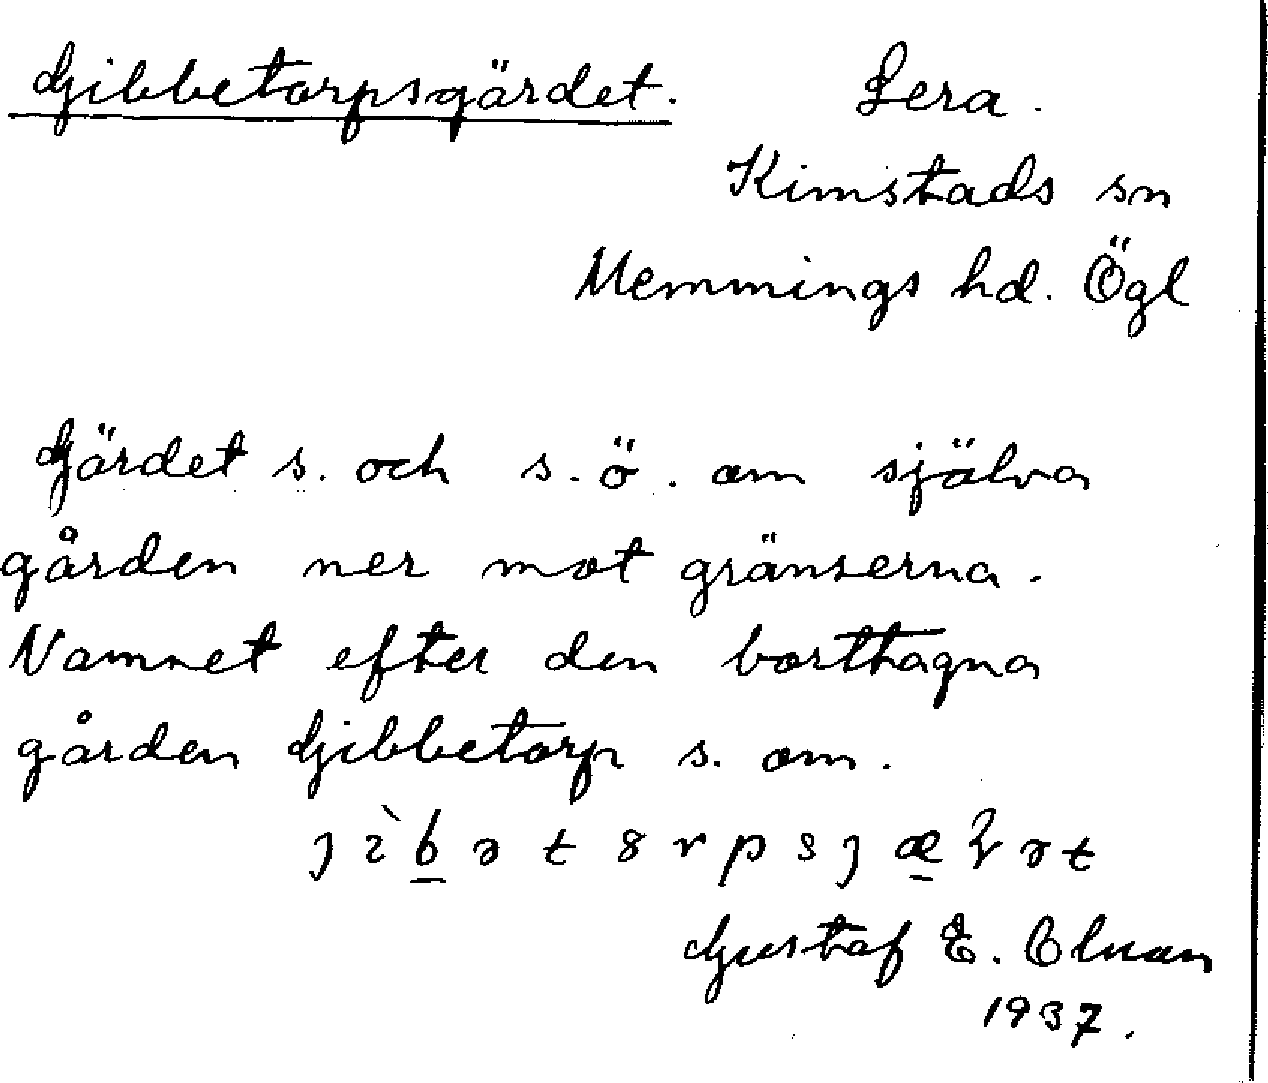 Gibbetorpsgärdet. Lera.
Kimstads sn
Memmings hd. Ögl
Gärdet s. och s.ö. om själva
gården ner mot gränserna.
Namnet efter den borttagna
gården Gibbetorp s. om.
Gustaf E.
1937.